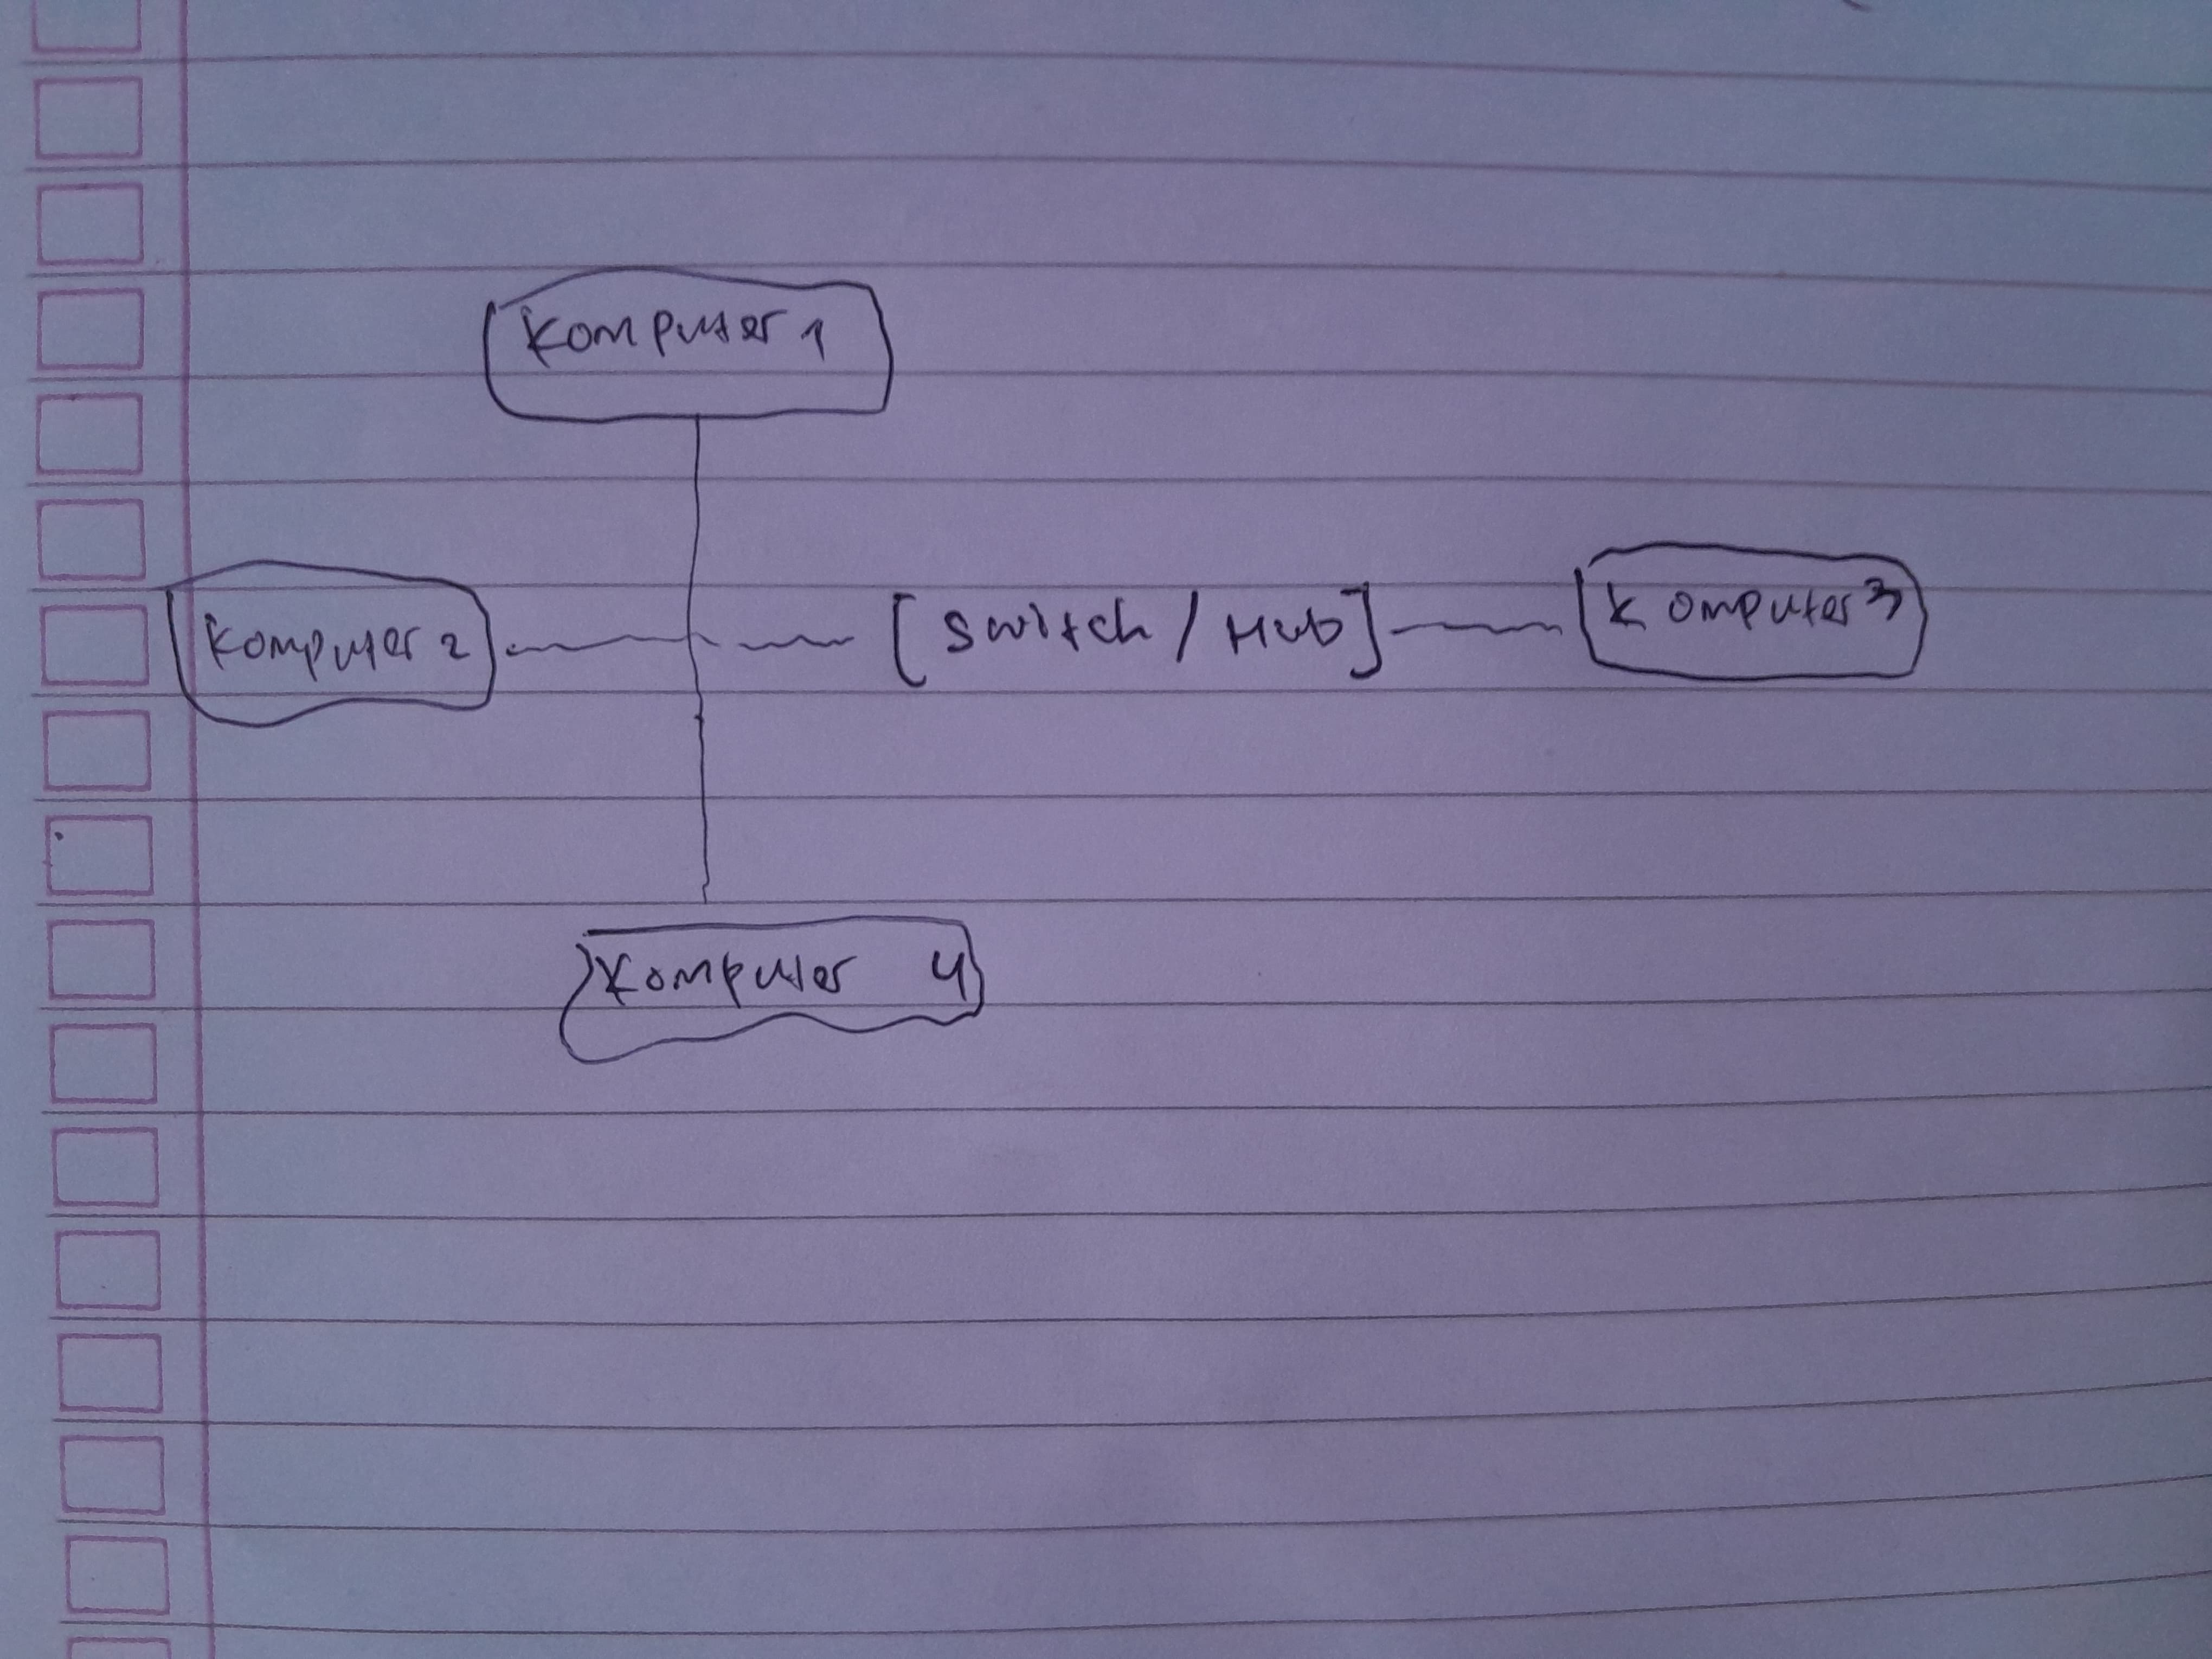 Komputer 1
Komputer 2
[Switch / Hub]
Komputer 3
Komputer 4